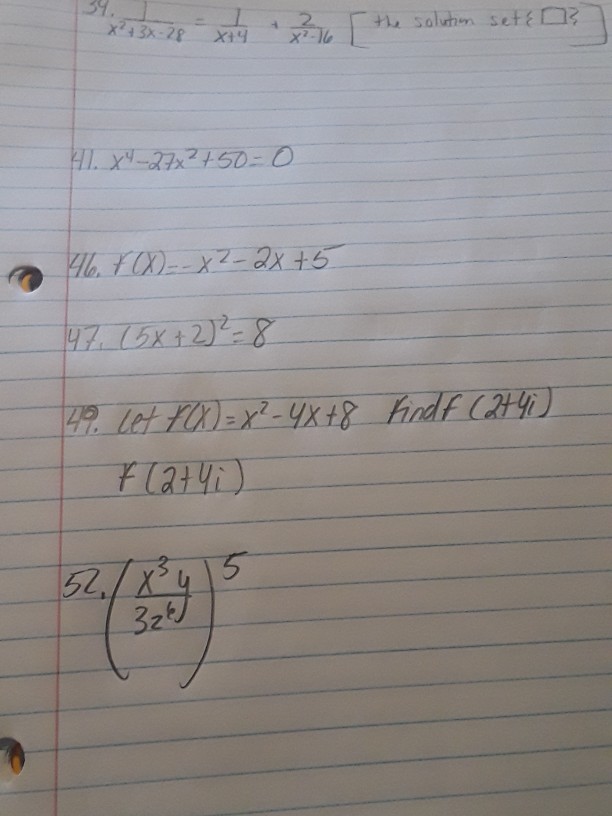 39. 1/(x²+3x-28) = 1/(x+4) + 2/(x²-16) [the solution set {□}]
41. x⁴-27x²+50=0
46. f(x)=-x²-2x+5
47. (5x+2)²=8
49. Let f(x)=x²-4x+8 Find f (2+4i)
f(2+4i)
52. (x³y/3z⁶)⁵